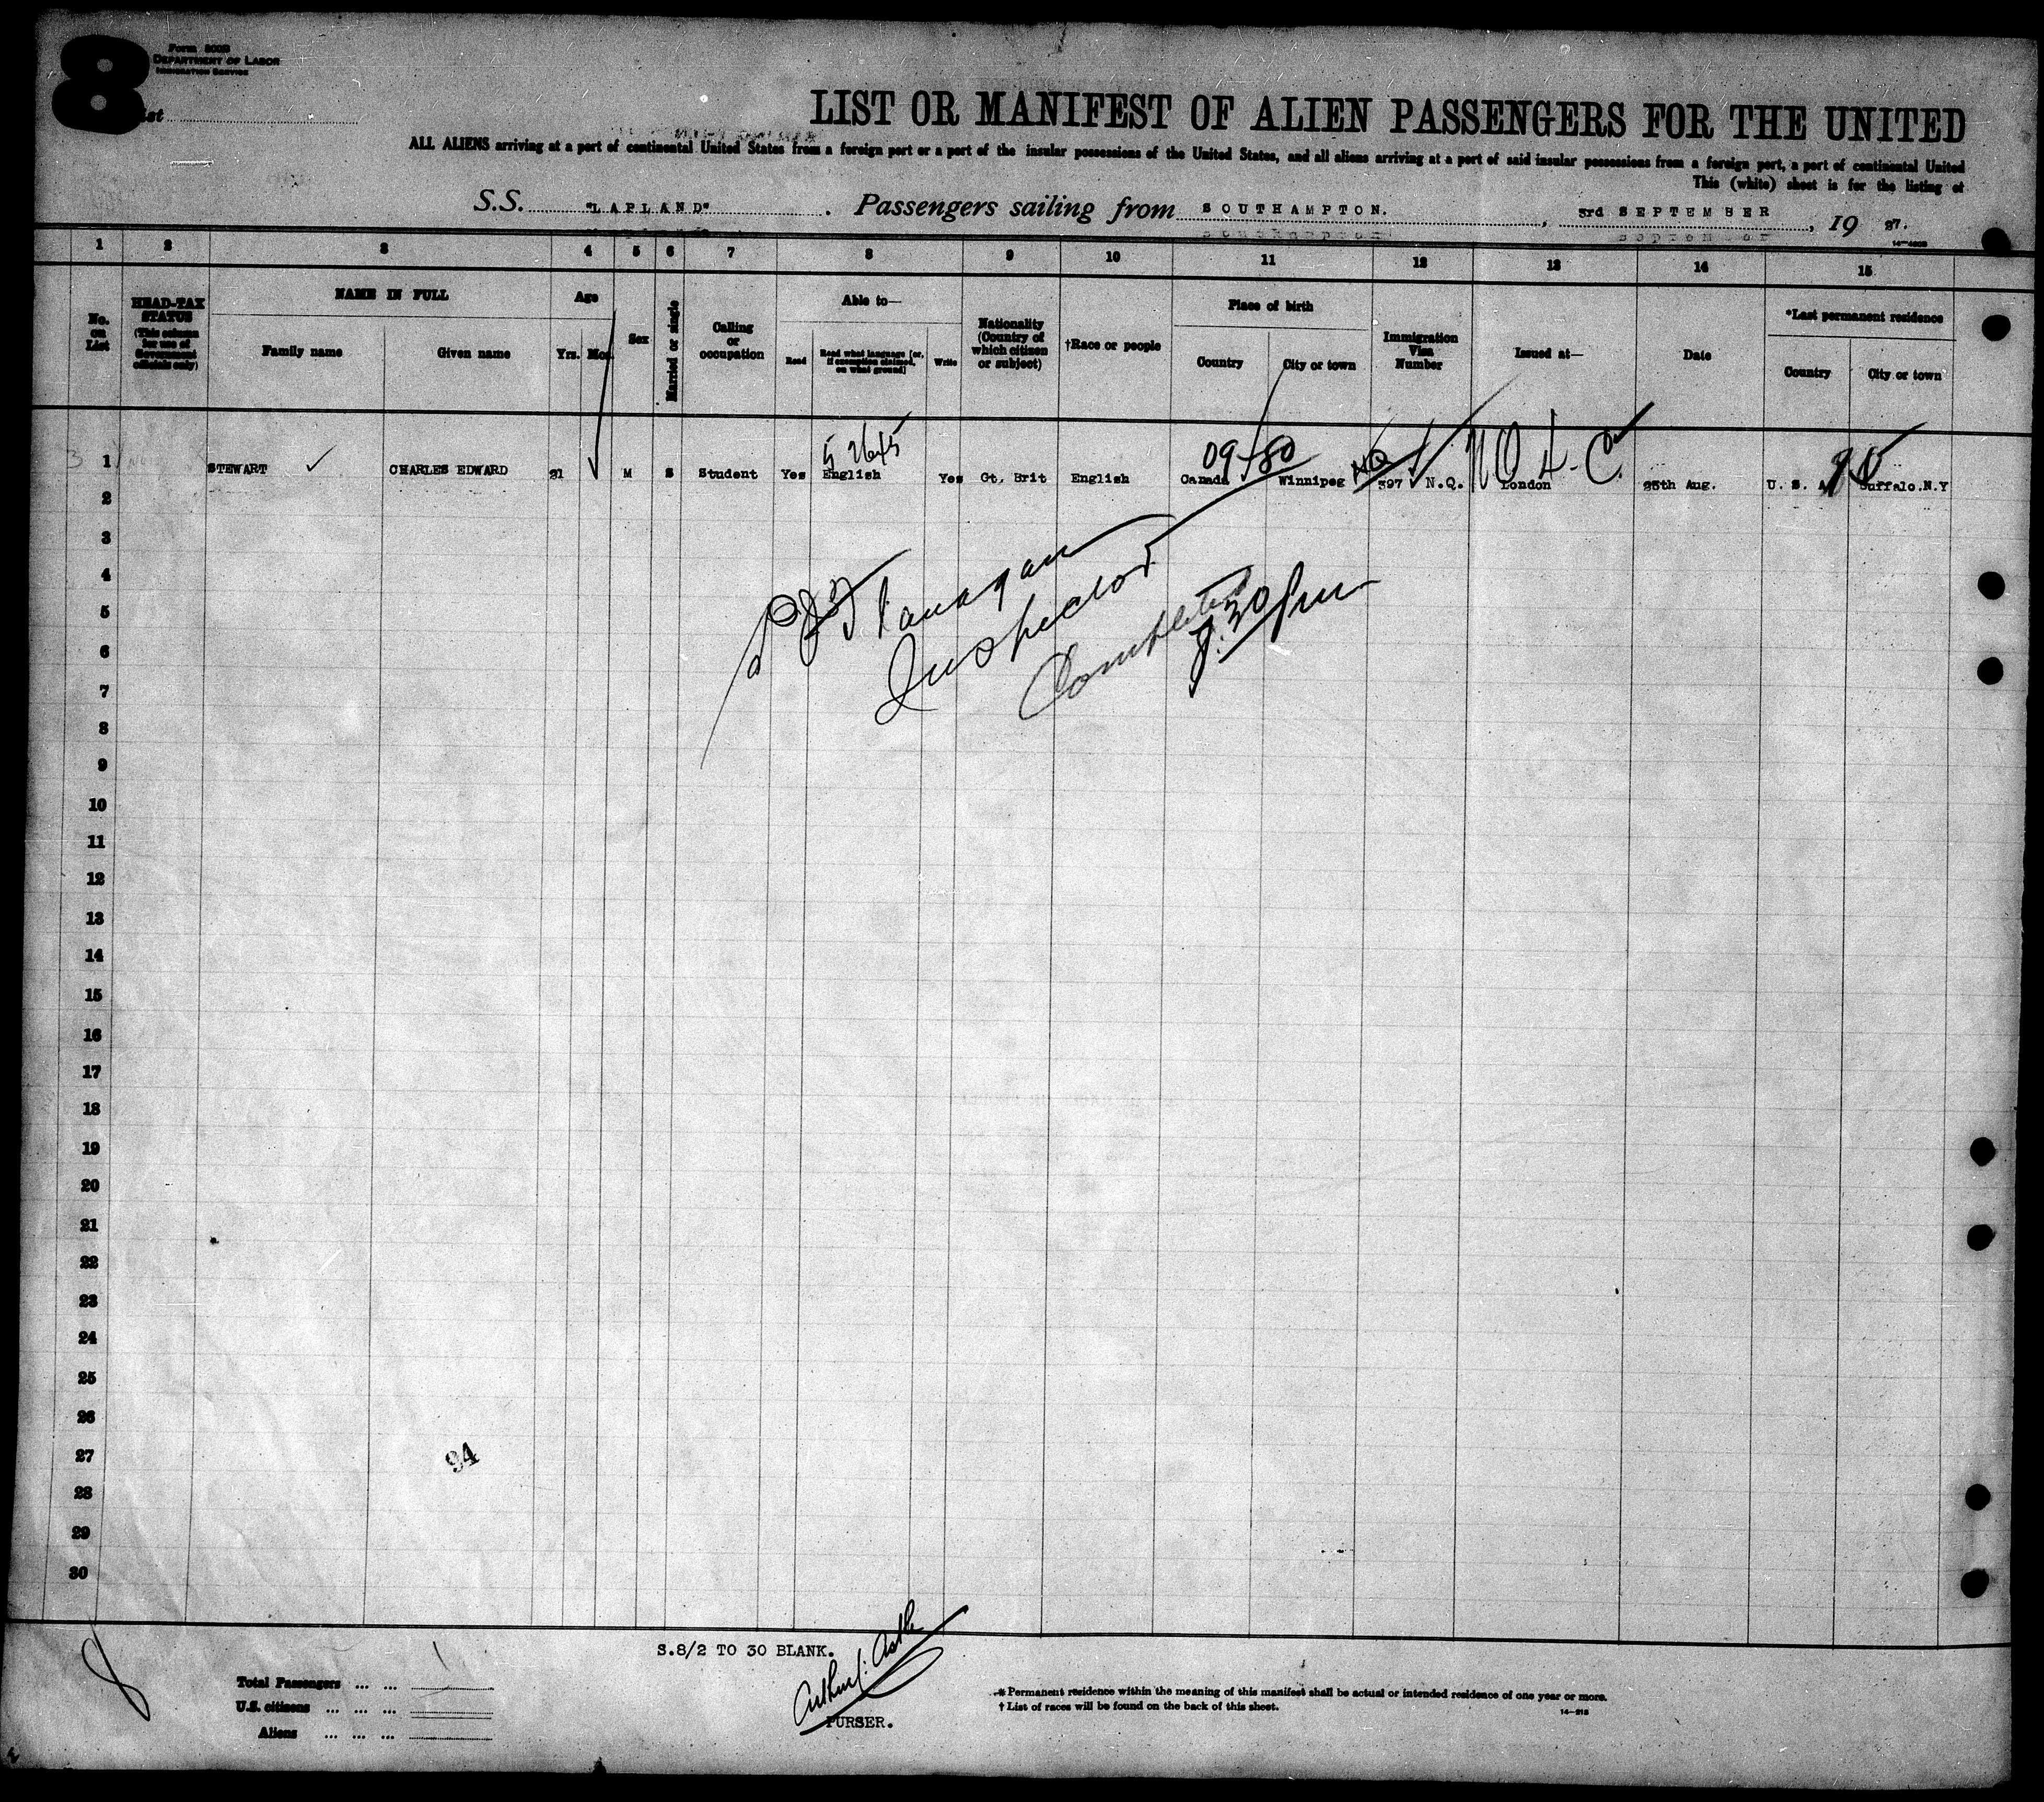 8
Form 500B
DEPARTMENT OF LABOR
IMMIGRATION SERVICE
List
LIST OR MANIFEST OF ALIEN PASSENGERS FOR THE UNITED
ALL ALIENS arriving at a port of continental United States from a foreign port or a port of the insular possessions of the United States, and all aliens arriving at a port of said insular possessions from a foreign port, a port of continental United
This (white) sheet is for the listing of
S.S. "LAPLAND". Passengers sailing from SOUTHAMPTON., 3rd SEPTEMBER, 19 27.
1 2 3 4 5 6 7 8 9 10 11 12 13 14 15
No. on List
HEAD-TAX STATUS (This column for use of Government officials only)
NAME IN FULL
Family name
Given name
Age
Yrs. Mos.
Sex
Married or single
Calling or occupation
Able to—
Read
Read what language [or, if exemption claimed, on what ground]
Write
Nationality (Country of which citizen or subject)
†Race or people
Place of birth
Country
City or town
Immigration Visa Number
Issued at—
Date
*Last permanent residence
Country
City or town
09-80
1 STEWART ✓ CHARLES EDWARD 21 M S Student Yes English Yes Gt. Brit English Canada Winnipeg 397 N.Q. London 25th Aug. U. S. A Buffalo.N.Y
2
3
4
5
6
7
8
9
10
11
12
13
14
15
16
17
18
19
20
21
22
23
24
25
26
27
28
29
30
Flanagan
Inspector
Completed
94
S.8/2 TO 30 BLANK.
PURSER.
Total Passengers ... ... 1
U.S. citizens ... ... ...
Aliens ... ... ...
* Permanent residence within the meaning of this manifest shall be actual or intended residence of one year or more.
† List of races will be found on the back of this sheet.